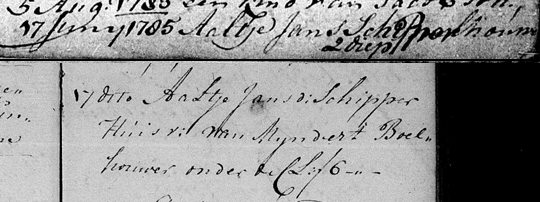 5 Aug: 1785 een kind van Jacob
17 Juny 1785 Aaltje Jans Schip
2 diep
17 dito Aaltje Jans di Schipper
Huisvr: van Myndert Boel„
houwer onder de Clif 6 - „ -